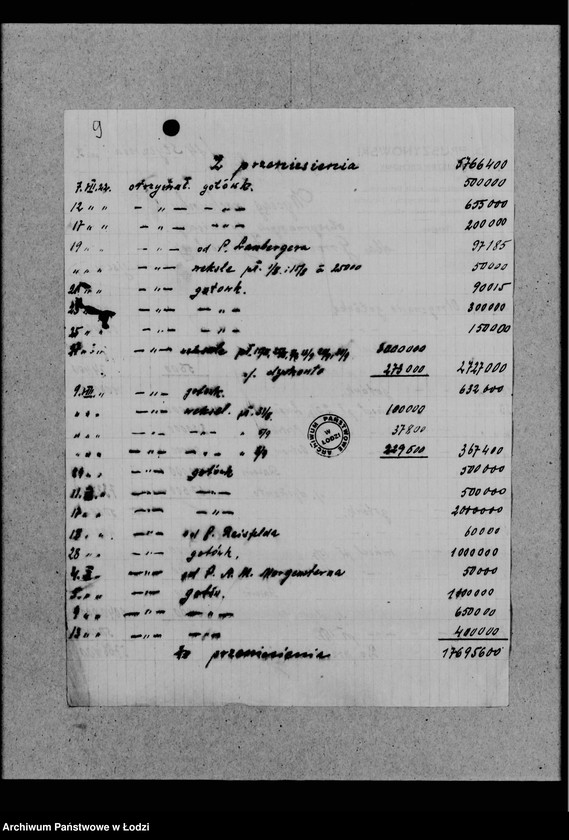 9
Z przeniesienia 5766400
7.VII.22. otrzymał. gotówk. 500000
12 " " — " — — " — 655000
17 " " — " — — " — 200000
19 " " — " — od P. Landbergera 97185
" " " — " — weksle pł. 1/8 i 15/8 à 25000 50000
" " — " — gotówk. 90015
" " — " — — " — 300000
25 " " — " — — " — 150000
— " — weksle pł. 3000000
./. dyskonto 273000 2727000
9.VIII. — " — gotówk. 632600
" " " — " — weksel. pł. 31/8 100000
" " " — " — — " — " 37800
" " " — " — — " — " 229500 367400
" " — " — gotówk 500000
21. " — " — — " — 500000
17 " " — " — — " — 2000000
18 " " — " — od P. Reisfelda 60000
28 " " — " — gotówk. 1000000
4. " — " — od P. A. M. Morgensterna 50000
5. " " — " — gotów. 1000000
9 " " — " — — " — 650000
13 " " — " — — " — 400000
Do przeniesienia 17695600
ARCHIWUM PAŃSTWOWE W ŁODZI
Archiwum Państwowe w Łodzi